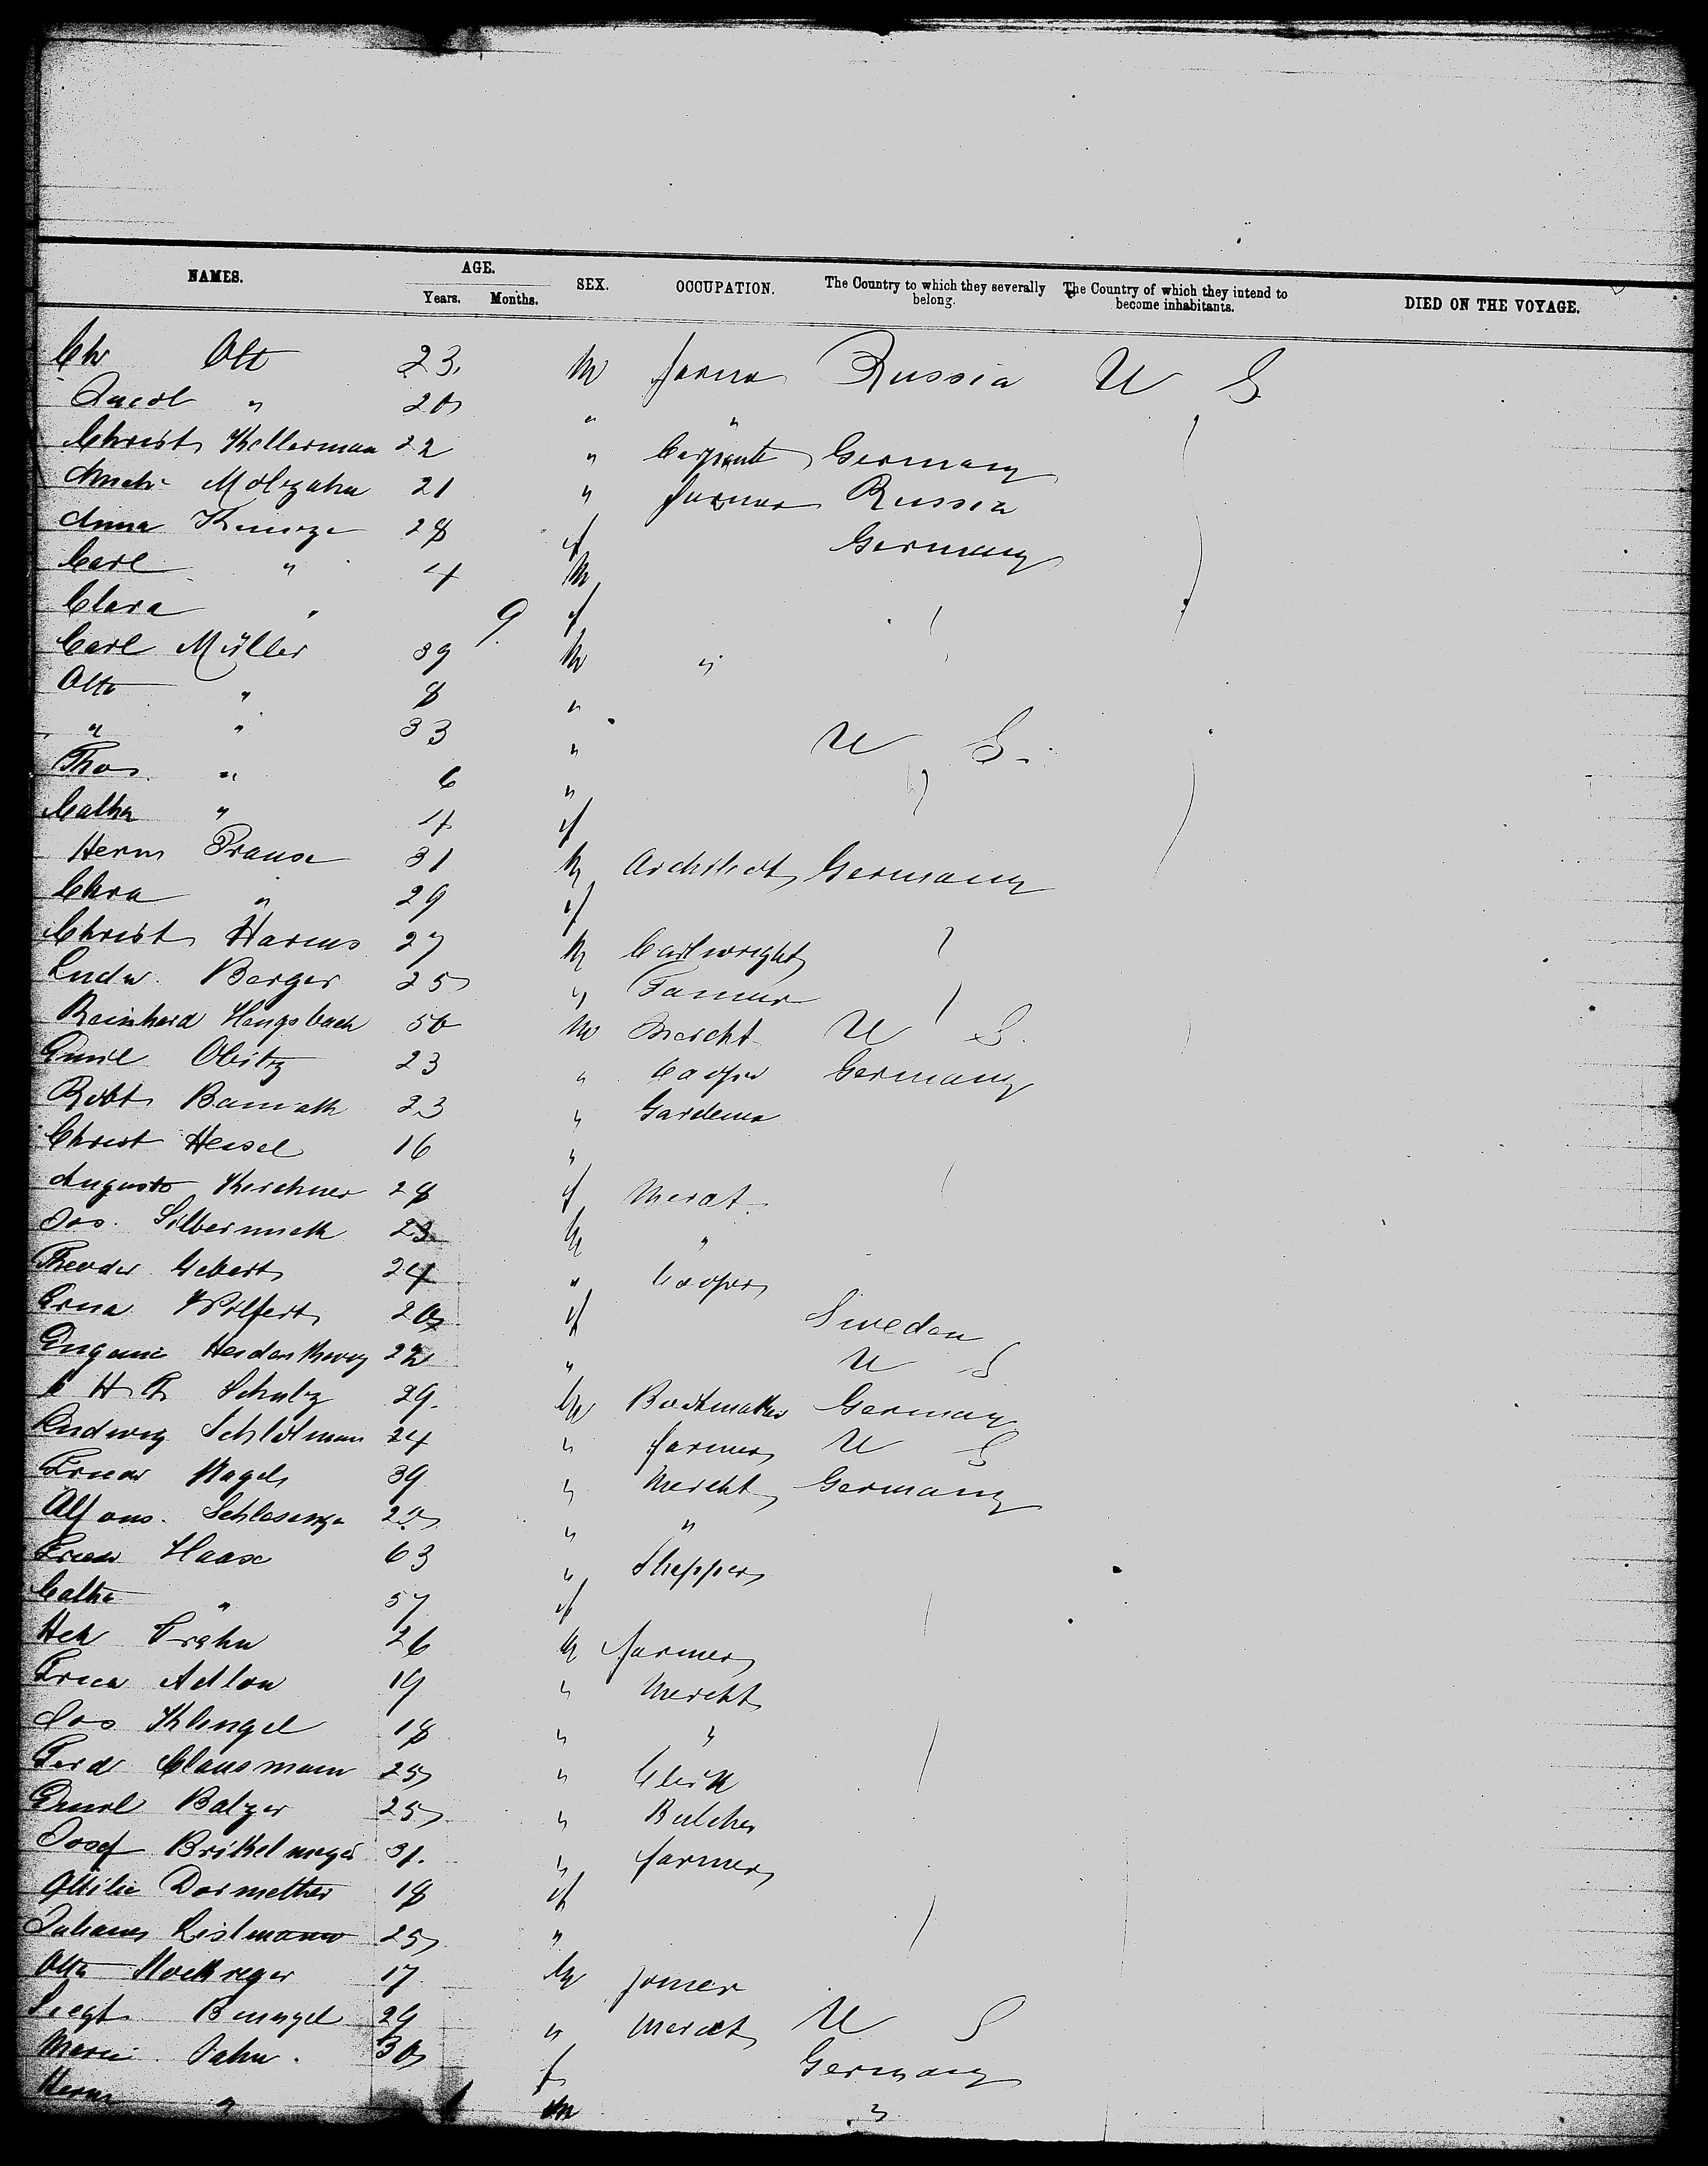 NAMES. AGE. SEX. OCCUPATION. The Country to which they severally belong. The Country of which they intend to become inhabitants. DIED ON THE VOYAGE.
Years. Months.
Chr Ott 23 M farmer Russia U S
Jacob " 20 " "
Christ Kellerman 22 " Carpenter Germany
Molzahn 21 " farmer Russia
Anna 28 f Germany
Carl " 4 M
Clara " 9 f
Carl Müller 39 M "
Otto " 8 "
" " 33 " U S.
Thos. " 6 "
Catha " 4 f
Herm Prause 31 M Architect Germany
Clara " 29 f
Christ Harms 27 M Cartwright
Ludw. Berger 25 " Tanner
Reinhard Hengsbach 50 M Mercht U S.
Emil Obitz 23 " Cooper Germany
Robt 23 " Gardener
Christ Heisel 16 "
Auguste Kirchner 28 f Merct.
Jos. 23 M "
Theodor Gebert 24 " Cooper
Wolfert 20 f Sweden
Eugenie 22 " U S
C H F Schulz 29. M Bookmaker Germany
Ludwig 24 " farmer U S
Nagel 39 " Mercht Germany
Alfons. Schlesinger 20 " "
Haase 63 " Shepper
Catha " 57 f
Hch Prahn 26 M farmer
Adlon 19 " Mercht
Jos Klingel 18 " "
Ferd Clausmann 25 " Clerk
Emil Balzer 25 " Butcher
Josef Brikelmeyer 31. " farmer
Ottilie 18 f
Listmann 25 "
Otto 17 M Joiner
29 " Merct U S
Marie Jahn. 30 f Germany
Herm " 1 M "